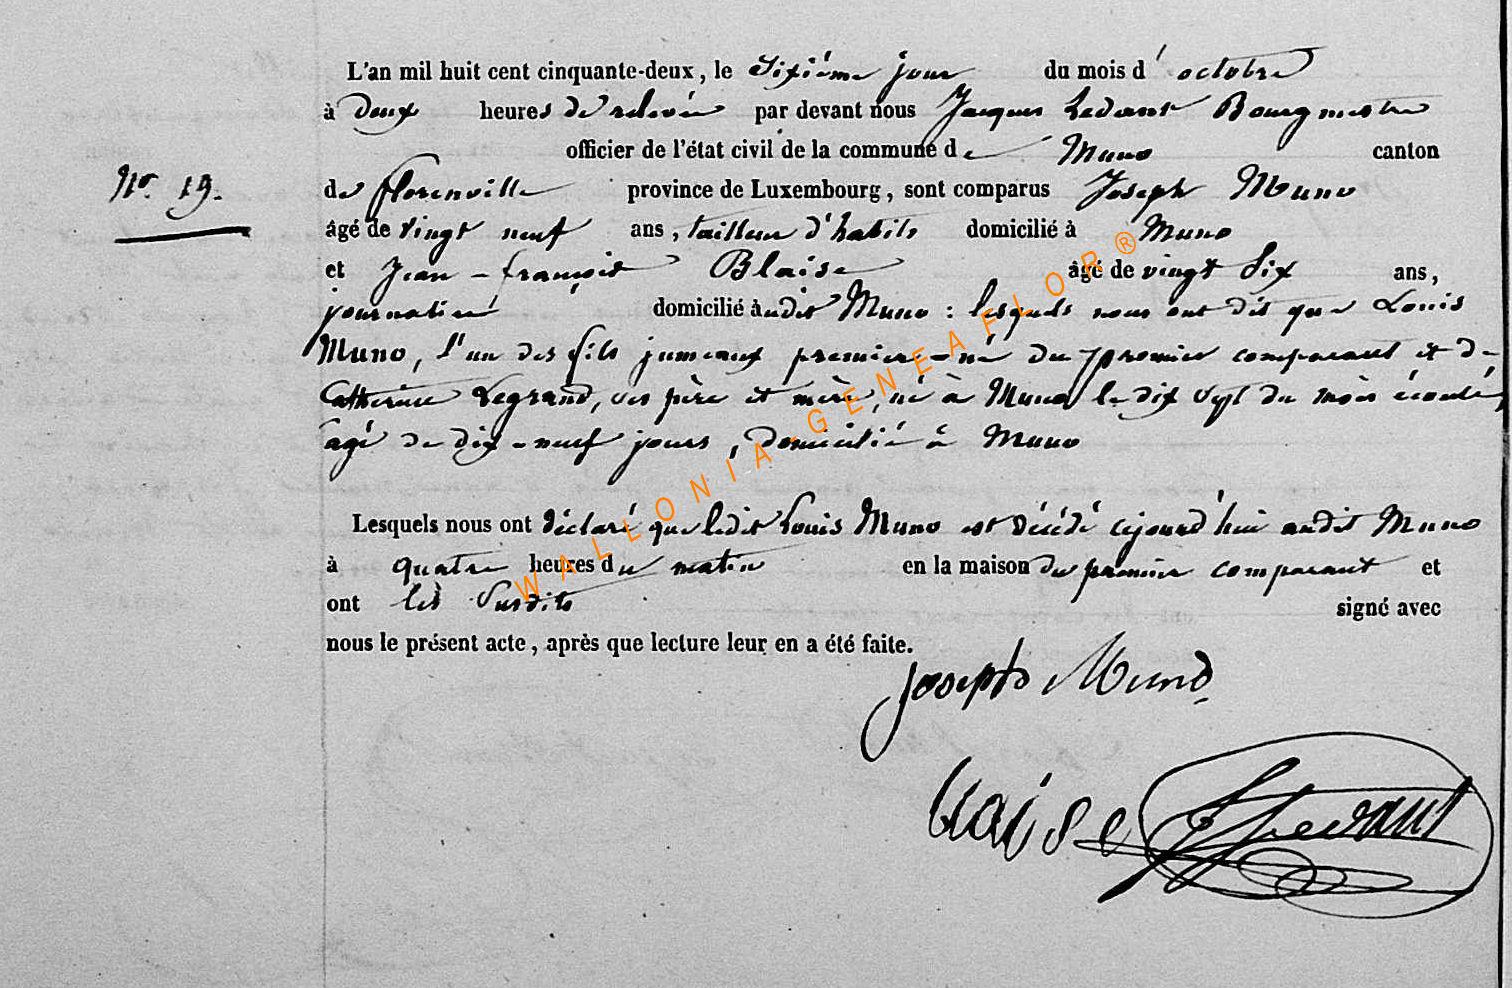 L'an mil huit cent cinquante-deux, le sixième jour du mois d'octobre
à deux heures de relevée par devant nous Jacques Ledant Bourgmestre
officier de l'état civil de la commune de Muno canton
Nr. 19. de florenville province de Luxembourg, sont comparus Joseph Muno
âgé de vingt neuf ans, tailleur d'habits domicilié à Muno
et Jean-françois Blaise âgé de vingt six ans,
journalier domicilié audit Muno : lesquels nous ont dit que Louis
Muno, l'un des fils jumeaux premier-né du premier comparant et de
Catherine Legrand, ses père et mère, né à Muno le dix sept du mois écoulé,
agé de dix-neuf jours, domicilié à Muno
Lesquels nous ont déclaré que ledit Louis Muno est décédé cejourd'hui audit Muno
à quatre heures du matin en la maison du premier comparant et
ont les susdits signé avec
nous le présent acte, après que lecture leur en a été faite.
Joseph Muno
blaise JLedant
WALLONIA-GENEAFLOR®